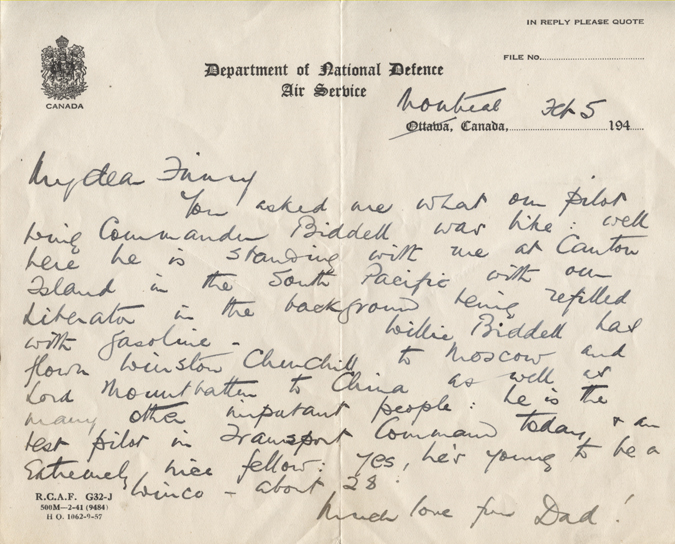 IN REPLY PLEASE QUOTE
FILE No.
CANADA
Department of National Defence
Air Service
Montreal Feb 5
Ottawa, Canada, 194
My dear Finny
You asked me what our pilot
Wing Commander Biddell was like: well
here he is standing with me at Canton
Island in the South Pacific with our
Liberator in the background being refilled
with gasoline - Willie Biddell has
flown Winston Churchill to Moscow and
Lord Mountbatten to China as well as
many other important people: he is the
best pilot in Transport Command today, & an
Extremely nice fellow: yes, he's young to be a
Winco - about 28
Much love from Dad!
R.C.A.F. G32-J
500M—2-41 (9484)
H Q. 1062-9-57